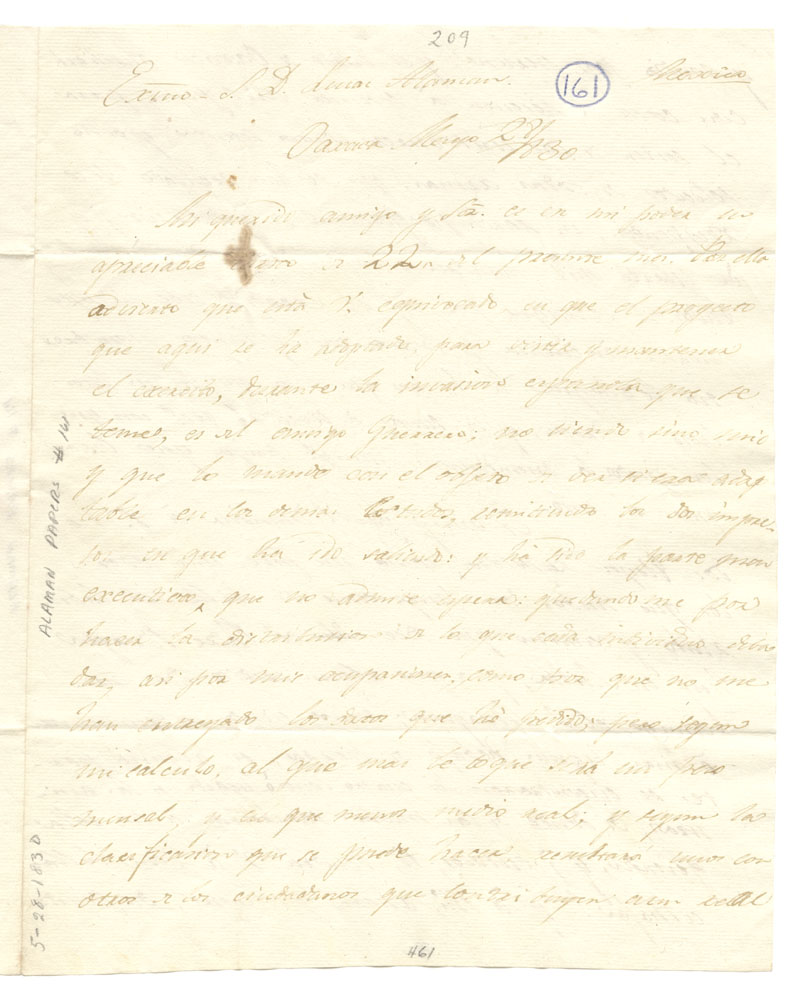 209
161
Mexico
Exmo. S. D. Lucas Alaman.
Oaxaca Mayo 28/1830.
Mi querido amigo y Sor. es en mi poder su
apreciable de 22 del presente mes. Por ella
advierto que está V. equivocado en que el proyecto
que aqui se ha adoptado para vestir y mantener
el exercito, durante la invasion española que se
teme, es del amigo Guerrero; no siendo sino mio
y que lo mando con el objeto de ver si era adap
table en los demas Estados, remitiendo los dos impre
sos en que ha ido saliendo: y ha sido la parte
executiva, que no admite espera: quedandome por
hacer la distribucion de lo que cada individuo deba
dar, asi por mis ocupaciones, como por que no me
han entregado los datos que he pedido; pero segun
mi calculo, al que mas le toque será un peso
mensal, y al que menos medio real; y segun la
clasificacion que se puede hacer resultará unos con
otros de los ciudadanos que contribuyen a un real
ALAMAN PAPERS # 161
5-28-1830
#61